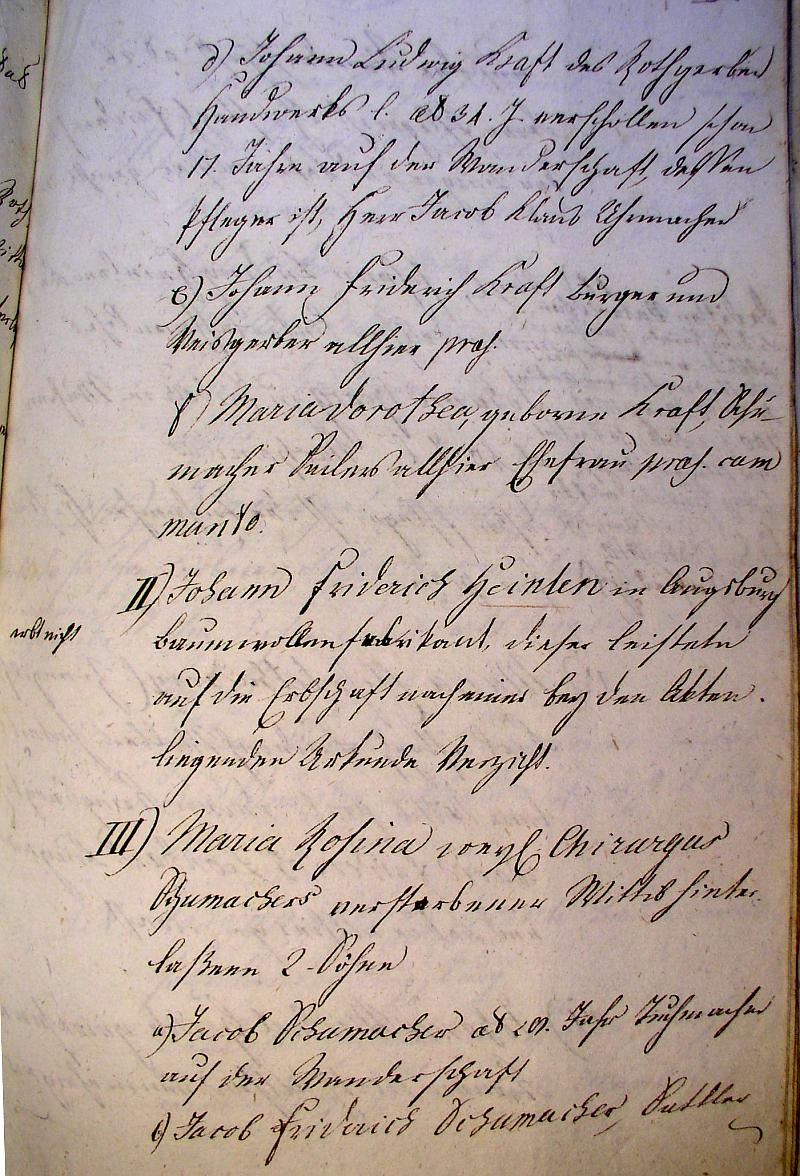 d) Johann Ludwig Kraft des Rothgerber
Handwerks l. aet 34. J. verschollen schon
17. Jahre auf der Wanderschaft, dessen
Pfleger ist, Herr Jacob Klaus Uhrmacher
e) Johann Friderich Kraft Burger und
Weisgerber allhier præs.
f) Maria Dorothea, geborne Kraft, Schu-
macher Seilers allhier Ehefrau præs. cum
marito.
II) Johann Friderich Heinlen in Augsburg
erbt nicht
Baumwollenfabrikant, dieser leistete
auf die Erbschaft nach einer bey den Akten
liegenden Urkunde Verzicht.
III) Maria Rosina weyl. Chirurgus
Schumachers verstorbener Wittib hinter
laßene 2 Söhne
a) Jacob Schumacher aet Jahr Tuchmacher
auf der Wanderschaft
b) Jacob Friderich Schumacher, Sattler